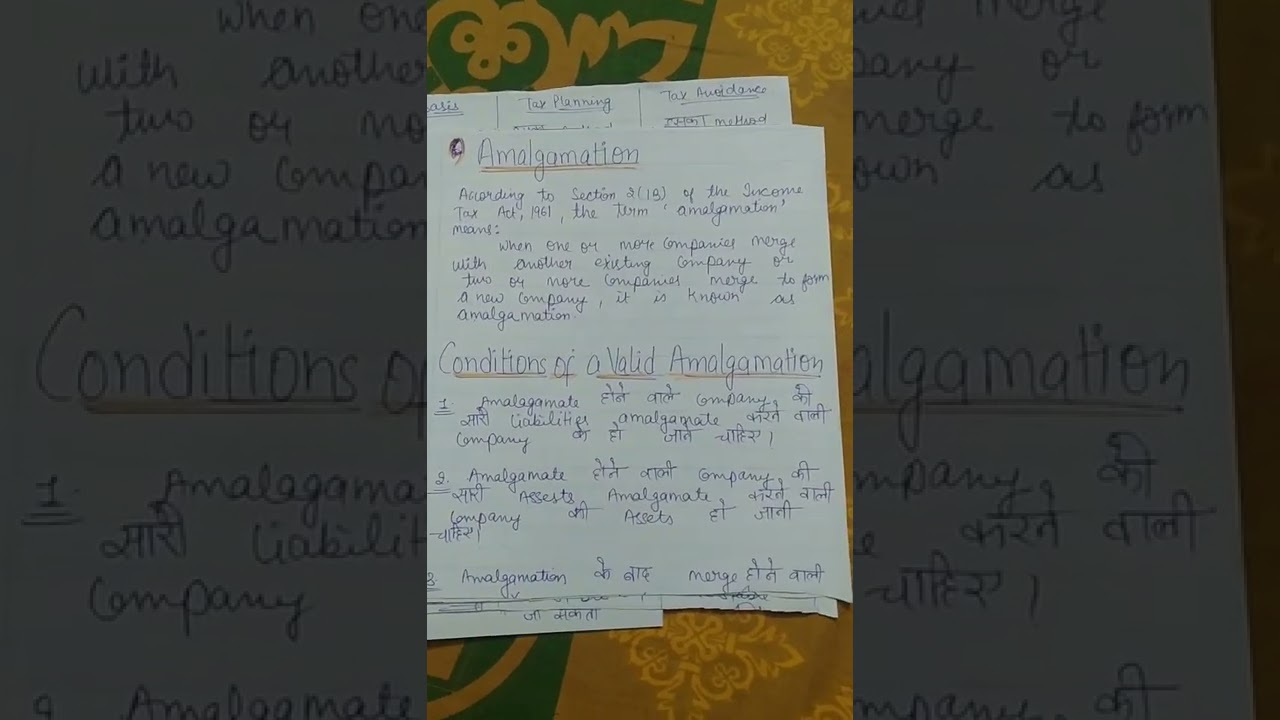 Basis Tax Planning Tax Avoidance
इसका method
Amalgamation
According to Section 2(1B) of the Income
Tax Act, 1961, the term 'amalgamation'
means:
When one or more companies merge
with another existing company or
two or more companies merge to form
a new company, it is known as
amalgamation.
Conditions of a Valid Amalgamation
1. Amalagamate होने वाले company की
सारी liabilities amalgamate करने वाली
company के हो जाने चाहिए।
2. Amalgamate होने वाली company की
सारी Assests Amalgamate करने वाली
company की Assets हो जानी
चाहिए।
3. Amalgamation के बाद merge होने वाली
जा सकता